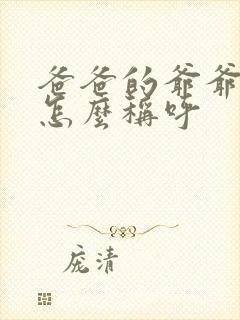 爸爸的爷爷
怎麼稱呼
庞清